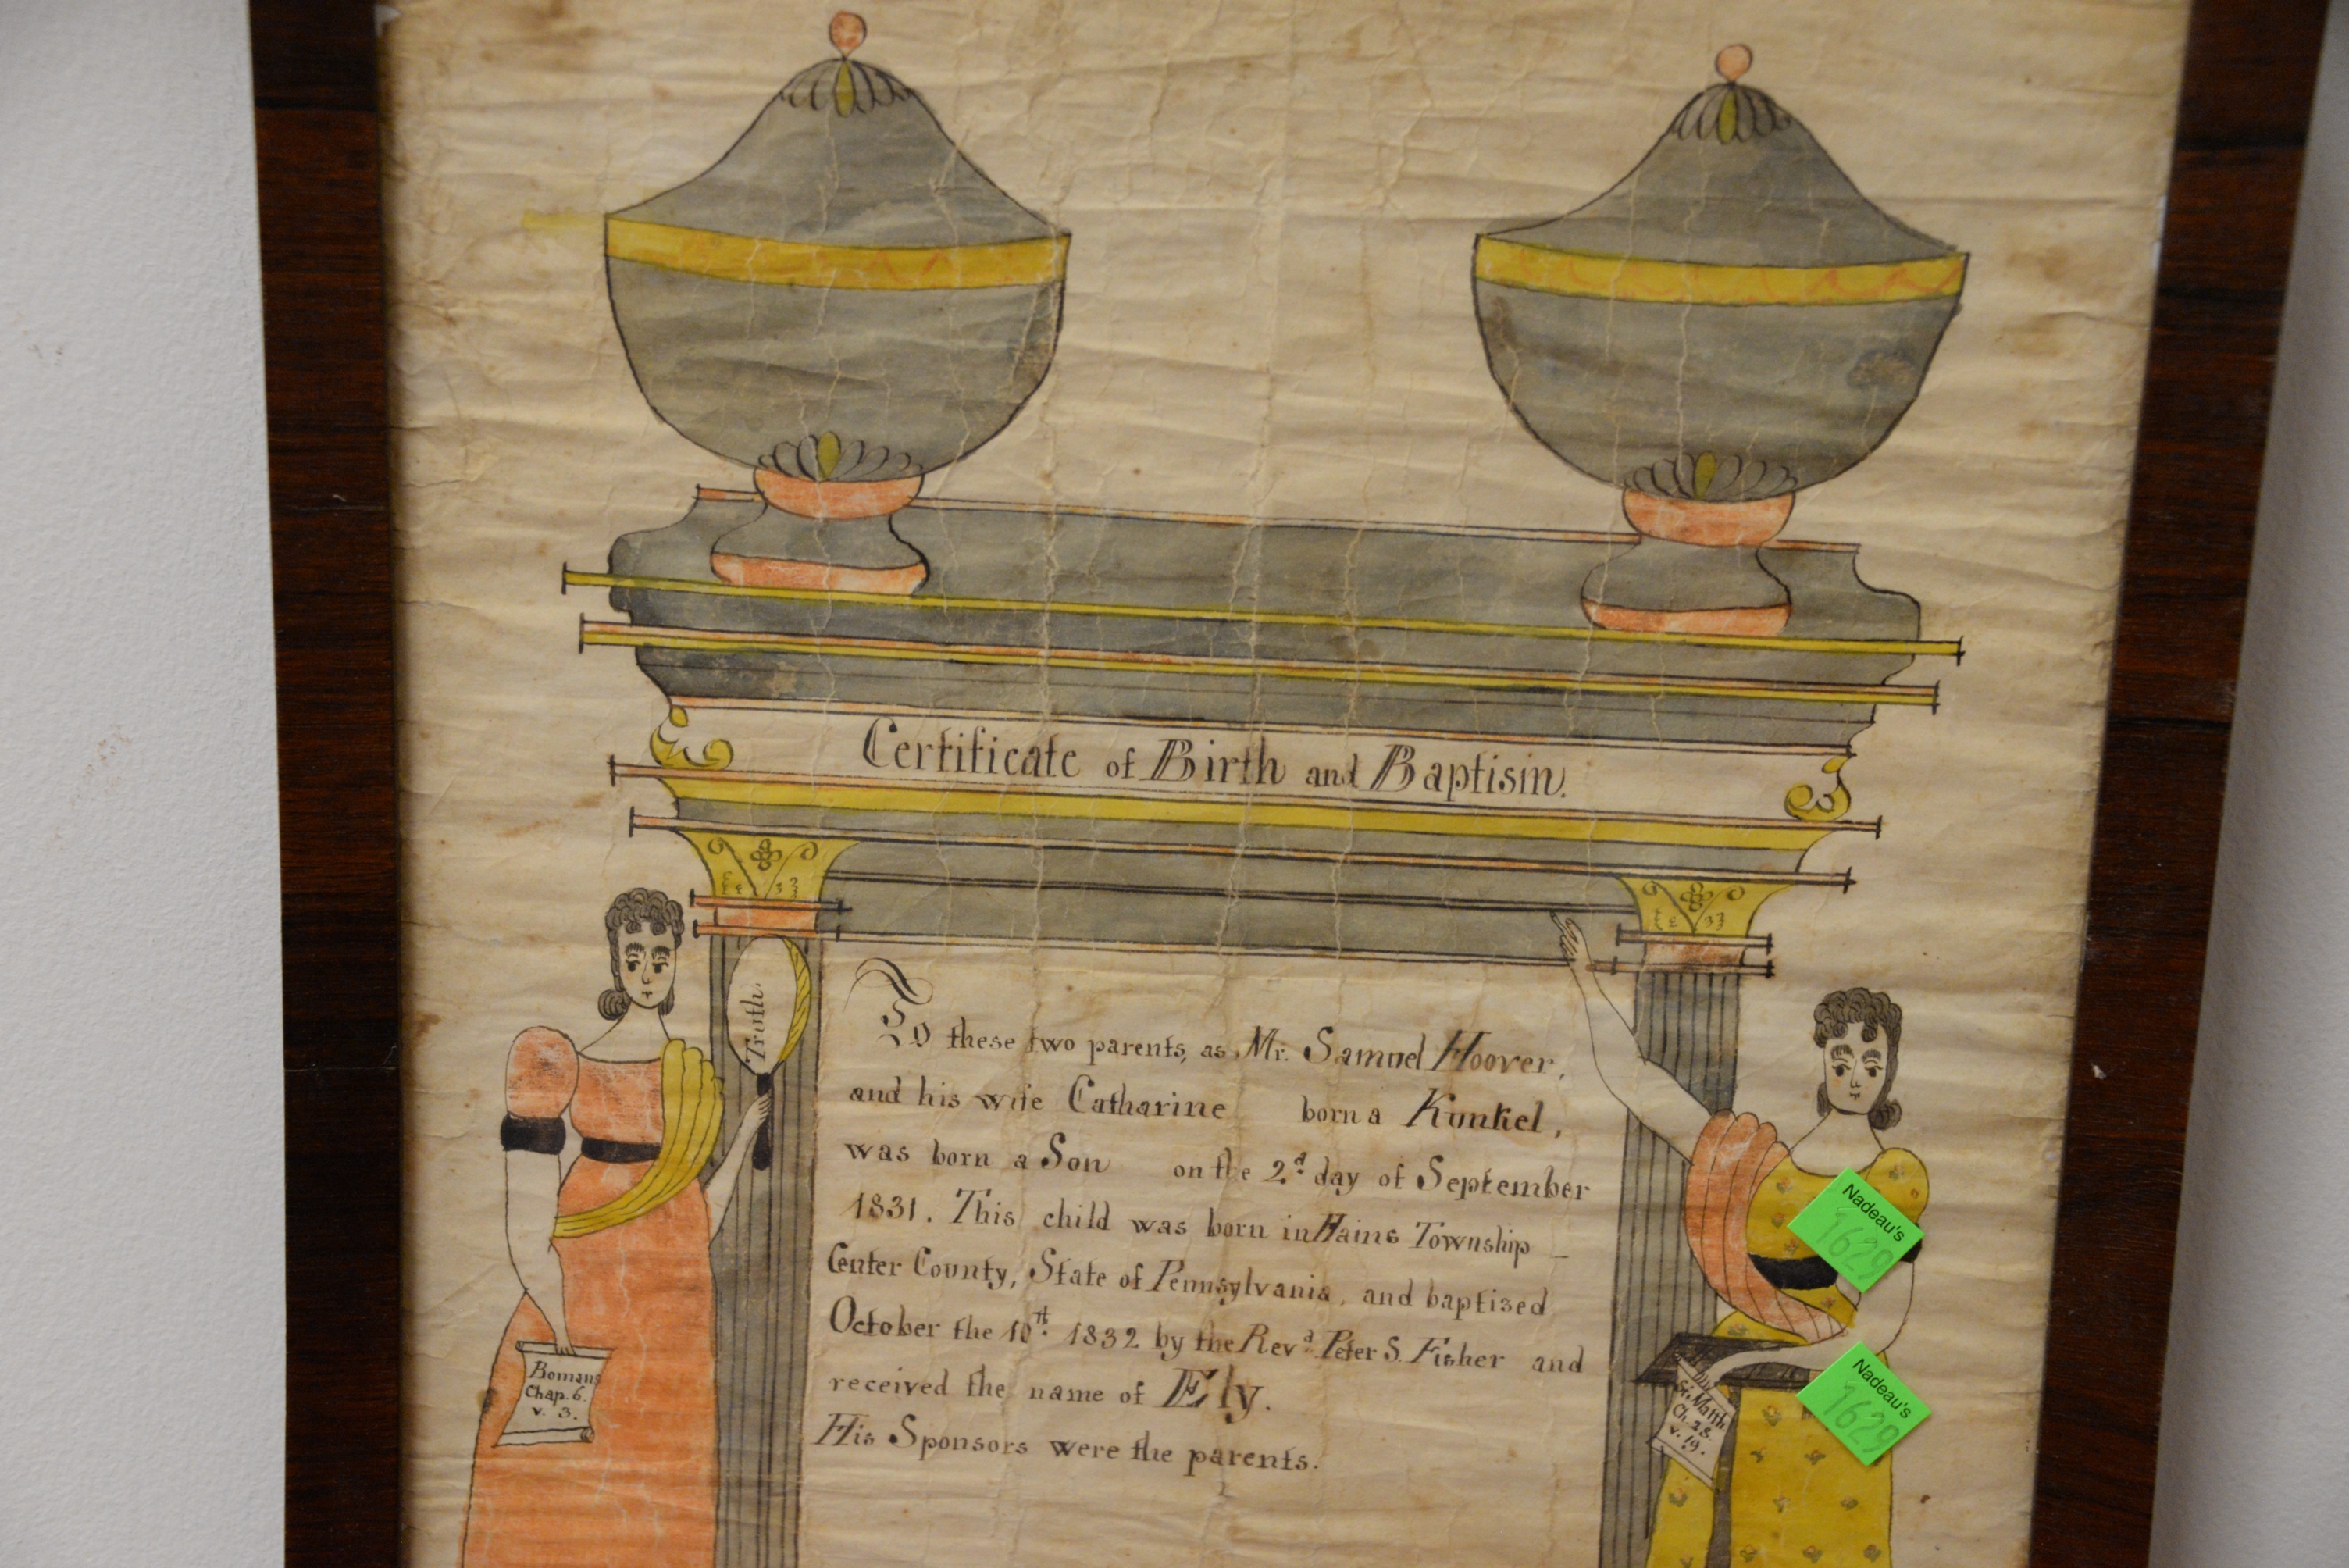 Certificate of Birth and Baptism.
Truth.
To these two parents, as Mr. Samuel Hoover,
and his wife Catharine born a Kunkel,
was born a Son on the 2d. day of September
1831. This child was born in Hains Township –
Center County, State of Pennsylvania, and baptised
October the 10th. 1832 by the Revd. Peter S. Fisher and
received the name of Ely.
His Sponsors were the parents.
Romans
Chap. 6.
v. 3.
St. Matth.
Ch. 28.
v. 19.
Nadeau's
1629
Nadeau's
1629